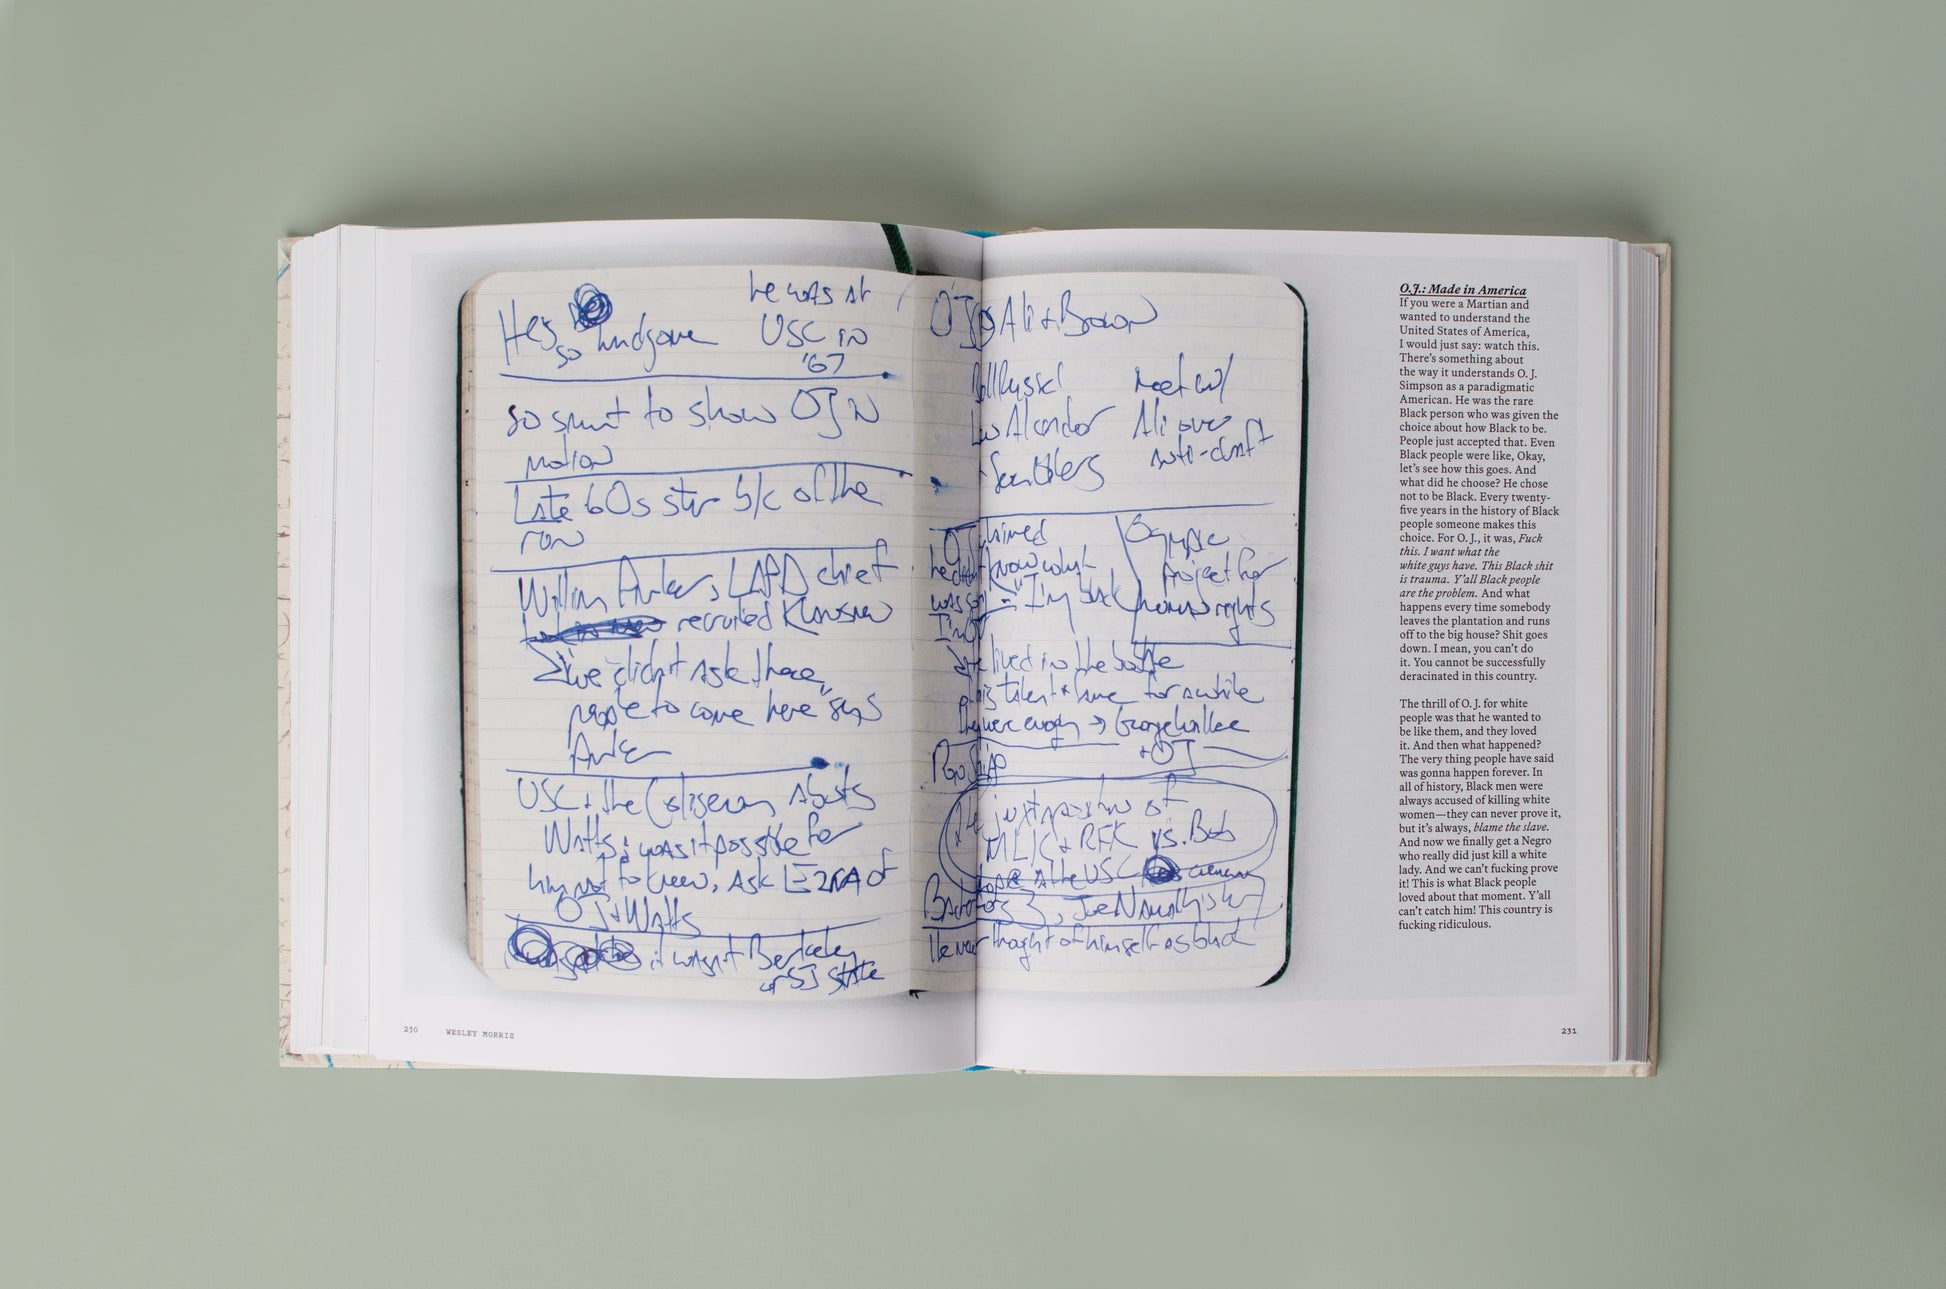 He's so handsome
he was at
USC in
'67
so smart to show OJ in
motion
Late 60s star b/c of the
row
William Parker, LAPD chief
recruited Klansmen
"we didn't ask these
people to come here," says
Parker
USC + the Coliseum, abuts
Watts; was it possible for
him not to know, ask EZRA of
OJ + Watts
it wasn't Berkeley
or SJ State
OJ Ali + Brown
Bill Russel
Lew Alcindor
meet w/
Ali over
anti-draft
OJ claimed
he didn't know what
was
"I'm black
Olympic
Project for
human rights
lived in the bubble
his talent + fame for a while
they were enough → George Wallace
+ OJ
the juxtaposition of
MLK + RFK vs. Bob
Hope at the USC
Joe Namath
He never thought of himself as black
O.J.: Made in America
If you were a Martian and
wanted to understand the
United States of America,
I would just say: watch this.
There's something about
the way it understands O. J.
Simpson as a paradigmatic
American. He was the rare
Black person who was given the
choice about how Black to be.
People just accepted that. Even
Black people were like, Okay,
let's see how this goes. And
what did he choose? He chose
not to be Black. Every twenty-
five years in the history of Black
people someone makes this
choice. For O. J., it was, Fuck
this. I want what the
white guys have. This Black shit
is trauma. Y'all Black people
are the problem. And what
happens every time somebody
leaves the plantation and runs
off to the big house? Shit goes
down. I mean, you can't do
it. You cannot be successfully
deracinated in this country.
The thrill of O. J. for white
people was that he wanted to
be like them, and they loved
it. And then what happened?
The very thing people have said
was gonna happen forever. In
all of history, Black men were
always accused of killing white
women—they can never prove it,
but it's always, blame the slave.
And now we finally get a Negro
who really did just kill a white
lady. And we can't fucking prove
it! This is what Black people
loved about that moment. Y'all
can't catch him! This country is
fucking ridiculous.
230 WESLEY MORRIS
231